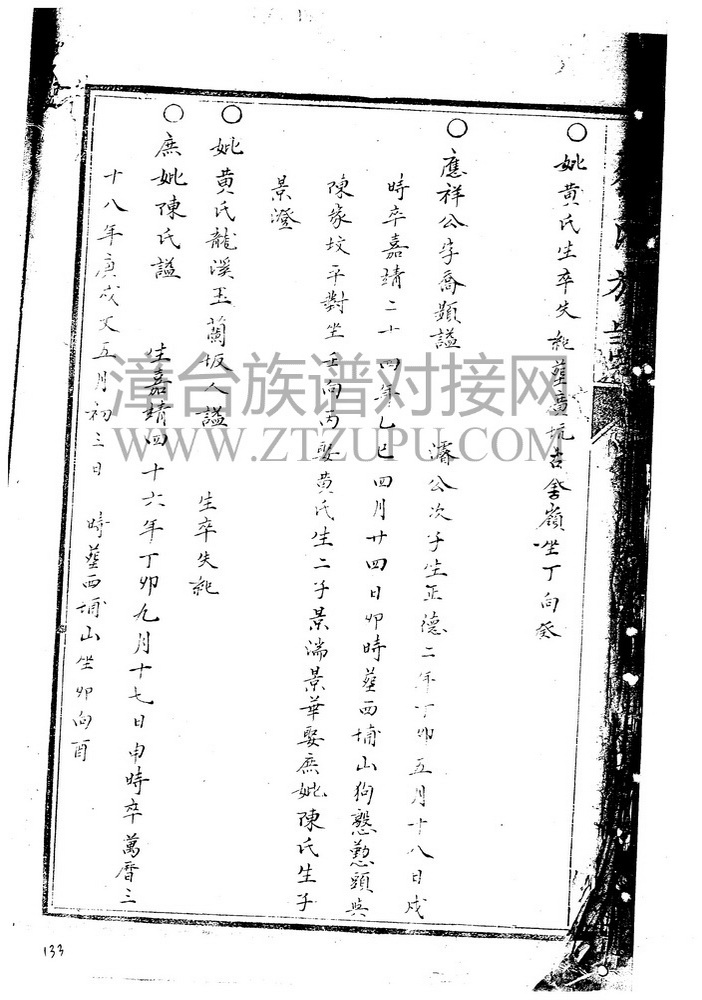 妣黃氏生卒失紀塟廣坑古舍嶺坐丁向癸
應祥公字喬顯諡 濬公次子生正德二年丁卯五月十八日戌
時卒嘉靖二十四年乙巳四月廿四日卯時塟西埔山狗懸懃頭與
陳家坟平對坐壬向丙娶黃氏生二子景湍景華娶庶妣陳氏生子
景澄
妣黃氏龍溪玉蘭坂人諡 生卒失紀
庶妣陳氏諡 生嘉靖四十六年丁卯九月十七日申時卒萬曆三
十八年庚戌又五月初三日 時塟西埔山坐卯向酉
漳台族谱对接网
WWW.ZTZUPU.COM
133